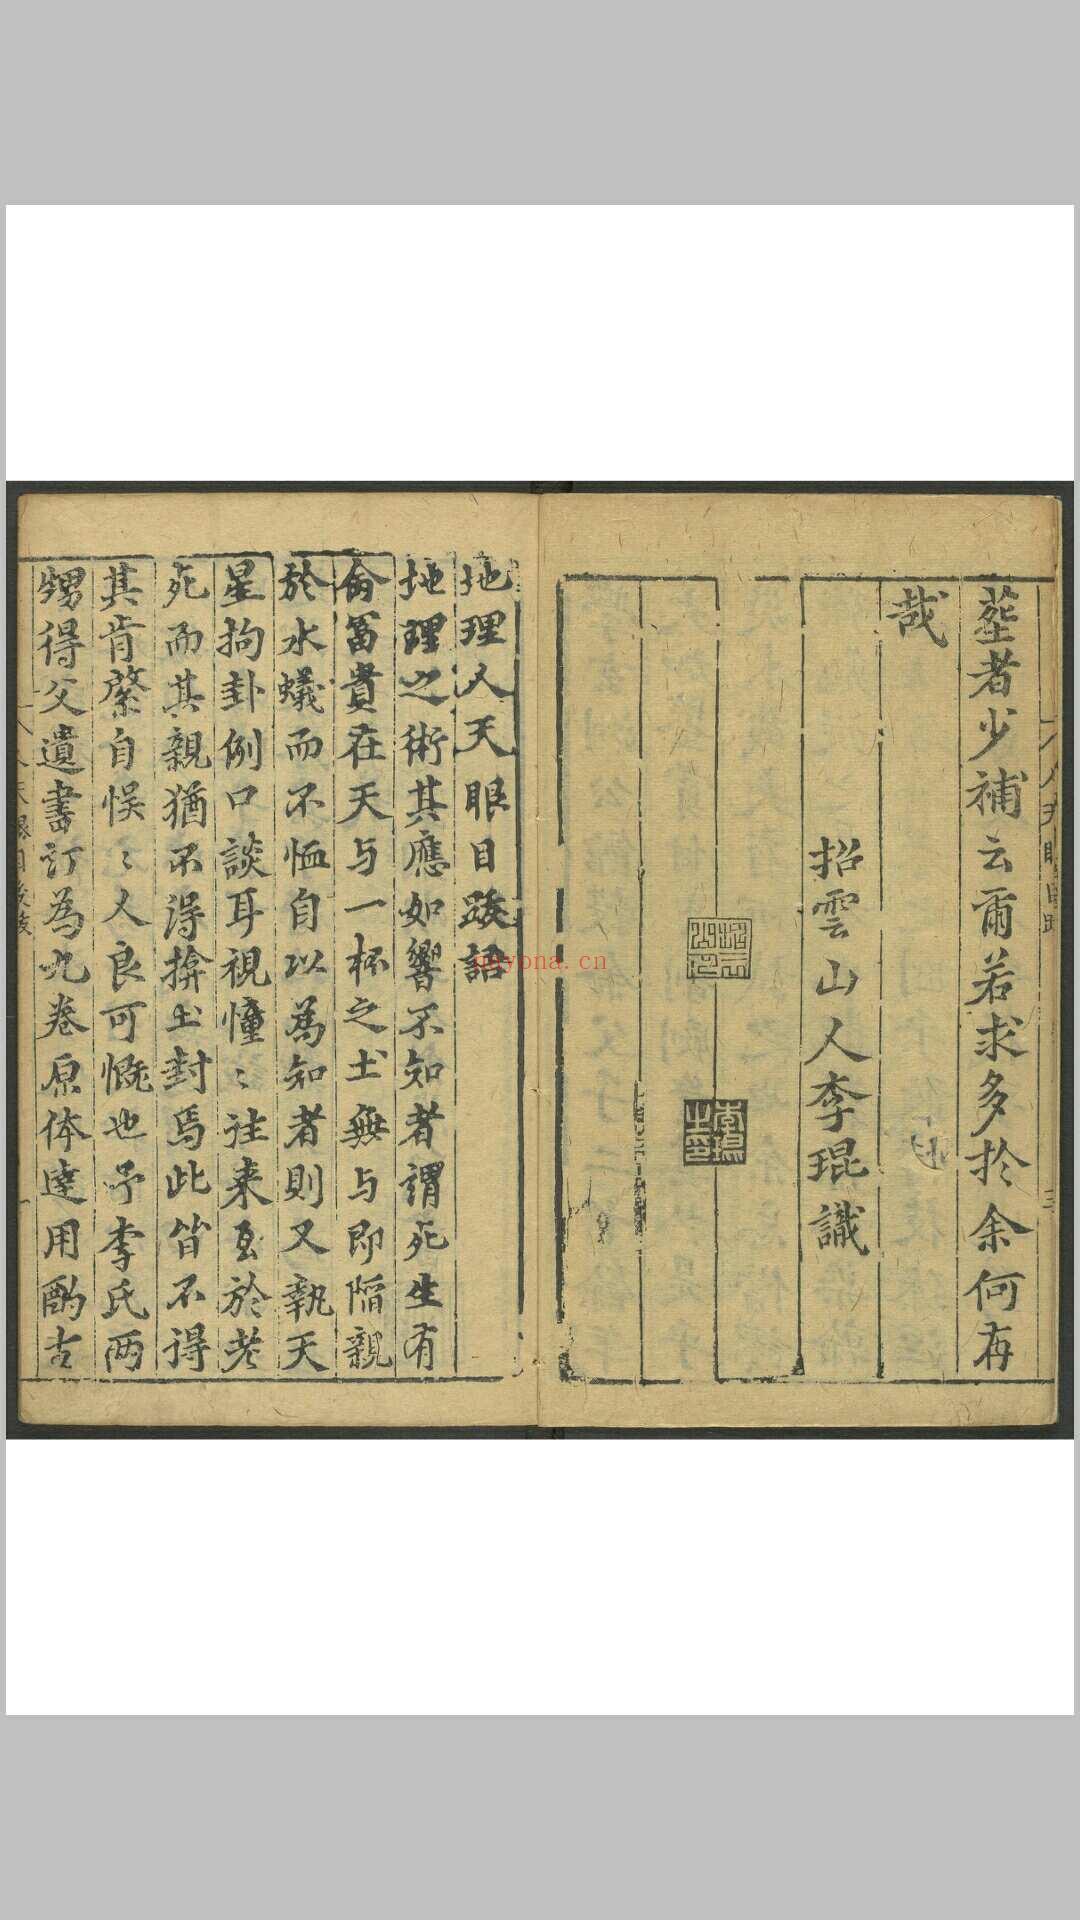 塋者少補云爾若求多扵余何再
哉
招雲山人李琨識
李琨之印
地理人天眼目跋語
地理之術其應如響不知者謂死生有
命冨貴在天与一杯之土無与即陷親
於水蟻而不恤自以為知者則又執天
星拘卦例口談耳視憧〻往来至於老
死而其親猶不得揜土封焉此皆不得
其肯綮自悞〻人良可慨也予李氏两
甥得父遺書訂為九卷原体達用酌古
guyona.cn